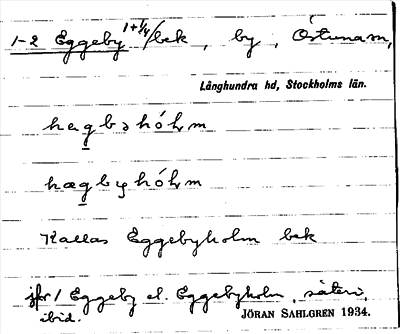 1-2 Eggeby 1+1/4 /bek, by, Östunam,
Långhundra hd, Stockholms län.
hægbyhólm
Kallas Eggebyholm bek
jfr / Eggeby el. Eggebyholm, säteri,
ibid. JÖRAN SAHLGREN 1934.